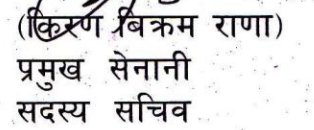 (किरण बिक्रम राणा)
प्रमुख सेनानी
सदस्य सचिव